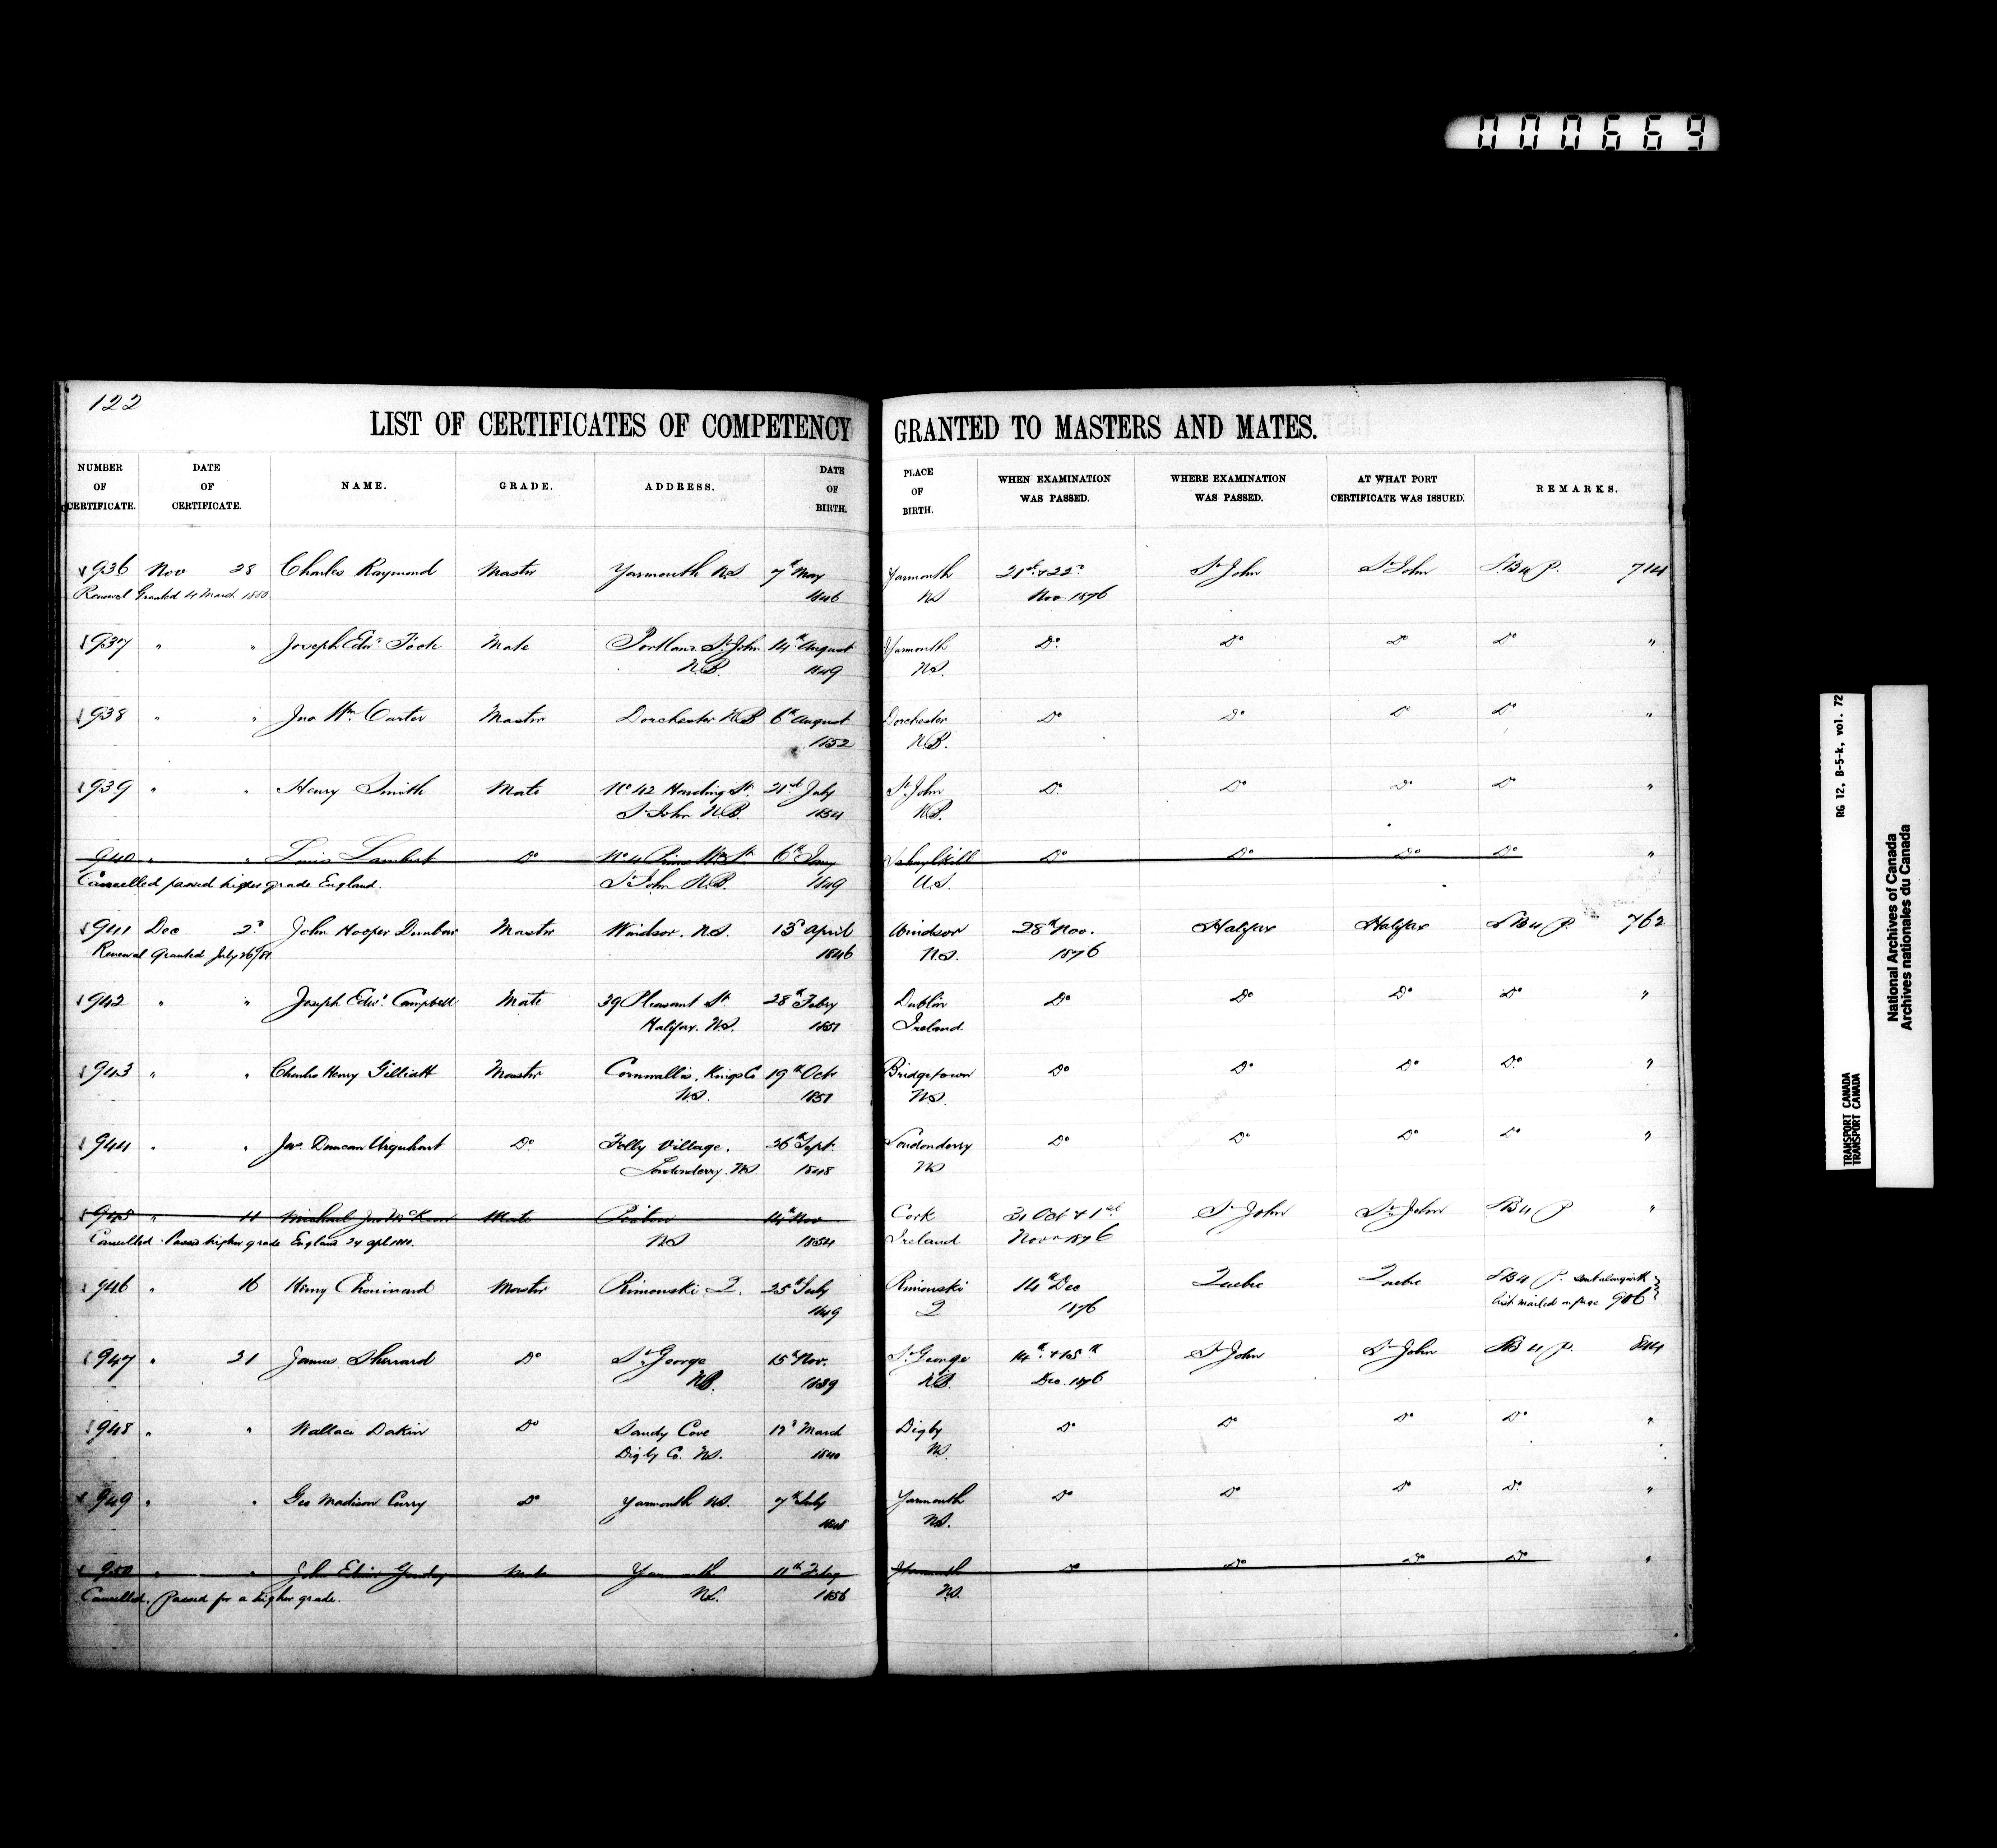 000669
122
LIST OF CERTIFICATES OF COMPETENCY GRANTED TO MASTERS AND MATES.
NUMBER OF CERTIFICATE. DATE OF CERTIFICATE. NAME. GRADE. ADDRESS. DATE OF BIRTH. PLACE OF BIRTH. WHEN EXAMINATION WAS PASSED. WHERE EXAMINATION WAS PASSED. AT WHAT PORT CERTIFICATE WAS ISSUED. REMARKS.
936 Nov 28 Charles Raymond Master Yarmouth N.S. 7th May Yarmouth 21st & 22d St John St John 714
Renewal Granted 4 March 1880 1846 NS Nov. 1876
937 " " Joseph Edwd Mate Portland St. John 14th August Yarmouth Do Do Do Do "
N.B. 1849 NS.
938 " " Jno Wm Carter Master Dorchester NB 6th August Dorchester Do Do Do Do "
1852 N.B.
939 " " Henry Smith Mate No 42 St. 21st July St John Do Do Do Do "
St John N.B. 1854 N.B.
940 " " Louis Lambert Do No 4 Wm St 6th Jany Do Do Do Do "
Cancelled passed higher grade England. St John N.B. 1849 U.S.
941 Dec 2d John Hooper Dunbar Master Windsor. N.S. April Windsor 28th Nov. Halifax Halifax 762
Renewal Granted July 26/81 1846 N.S. 1876
942 " " Joseph Edwd Campbell Mate 39 Pleasant St. 28th Febry Dublin Do Do Do Do "
Halifax. N.S. 1851 Ireland
943 " " Charles Henry Gilliatt Master Cornwallis, Kings Co 19th Octr Bridgetown Do Do Do Do "
N.S. 1851 N.S.
944 " " Jas. Duncan Urquhart Do Folly Village, 26th Sept. Londonderry Do Do Do Do "
Londonderry. N.S. 1848 NS
945 " 11 Michael Jno McKeon Mate Pictou 14th Nov Cork 31 Oct & 1st St John St John "
Cancelled. Passed higher grade England 24 apl NS 1854 Ireland Nov 1876
946 " 16 Henry Chouinard Master Rimouski Q. 25th July Rimouski 14th Dec Quebec Quebec
1849 Q 1876 list mailed on page 906
947 " 21 James Sherrard Do St George 15th Nov. St. George 14th & 15th St John St John 844
N.B. 1839 N.B. Dec. 1876
948 " " Wallace Dakin Do Sandy Cove March Digby Do Do Do Do "
Digby Co. N.S. 1840 NS.
949 " " Geo Madison Curry Do Yarmouth NS. 7th July Yarmouth Do Do Do Do "
1848 N.S.
950 " " John Mate Yarmouth 11th Yarmouth Do Do Do Do "
Cancelled. Passed for a higher grade. N.S. 1856 N.S.
RG 12, B-5-k, vol. 72
TRANSPORT CANADA
TRANSPORT CANADA
National Archives of Canada
Archives nationales du Canada